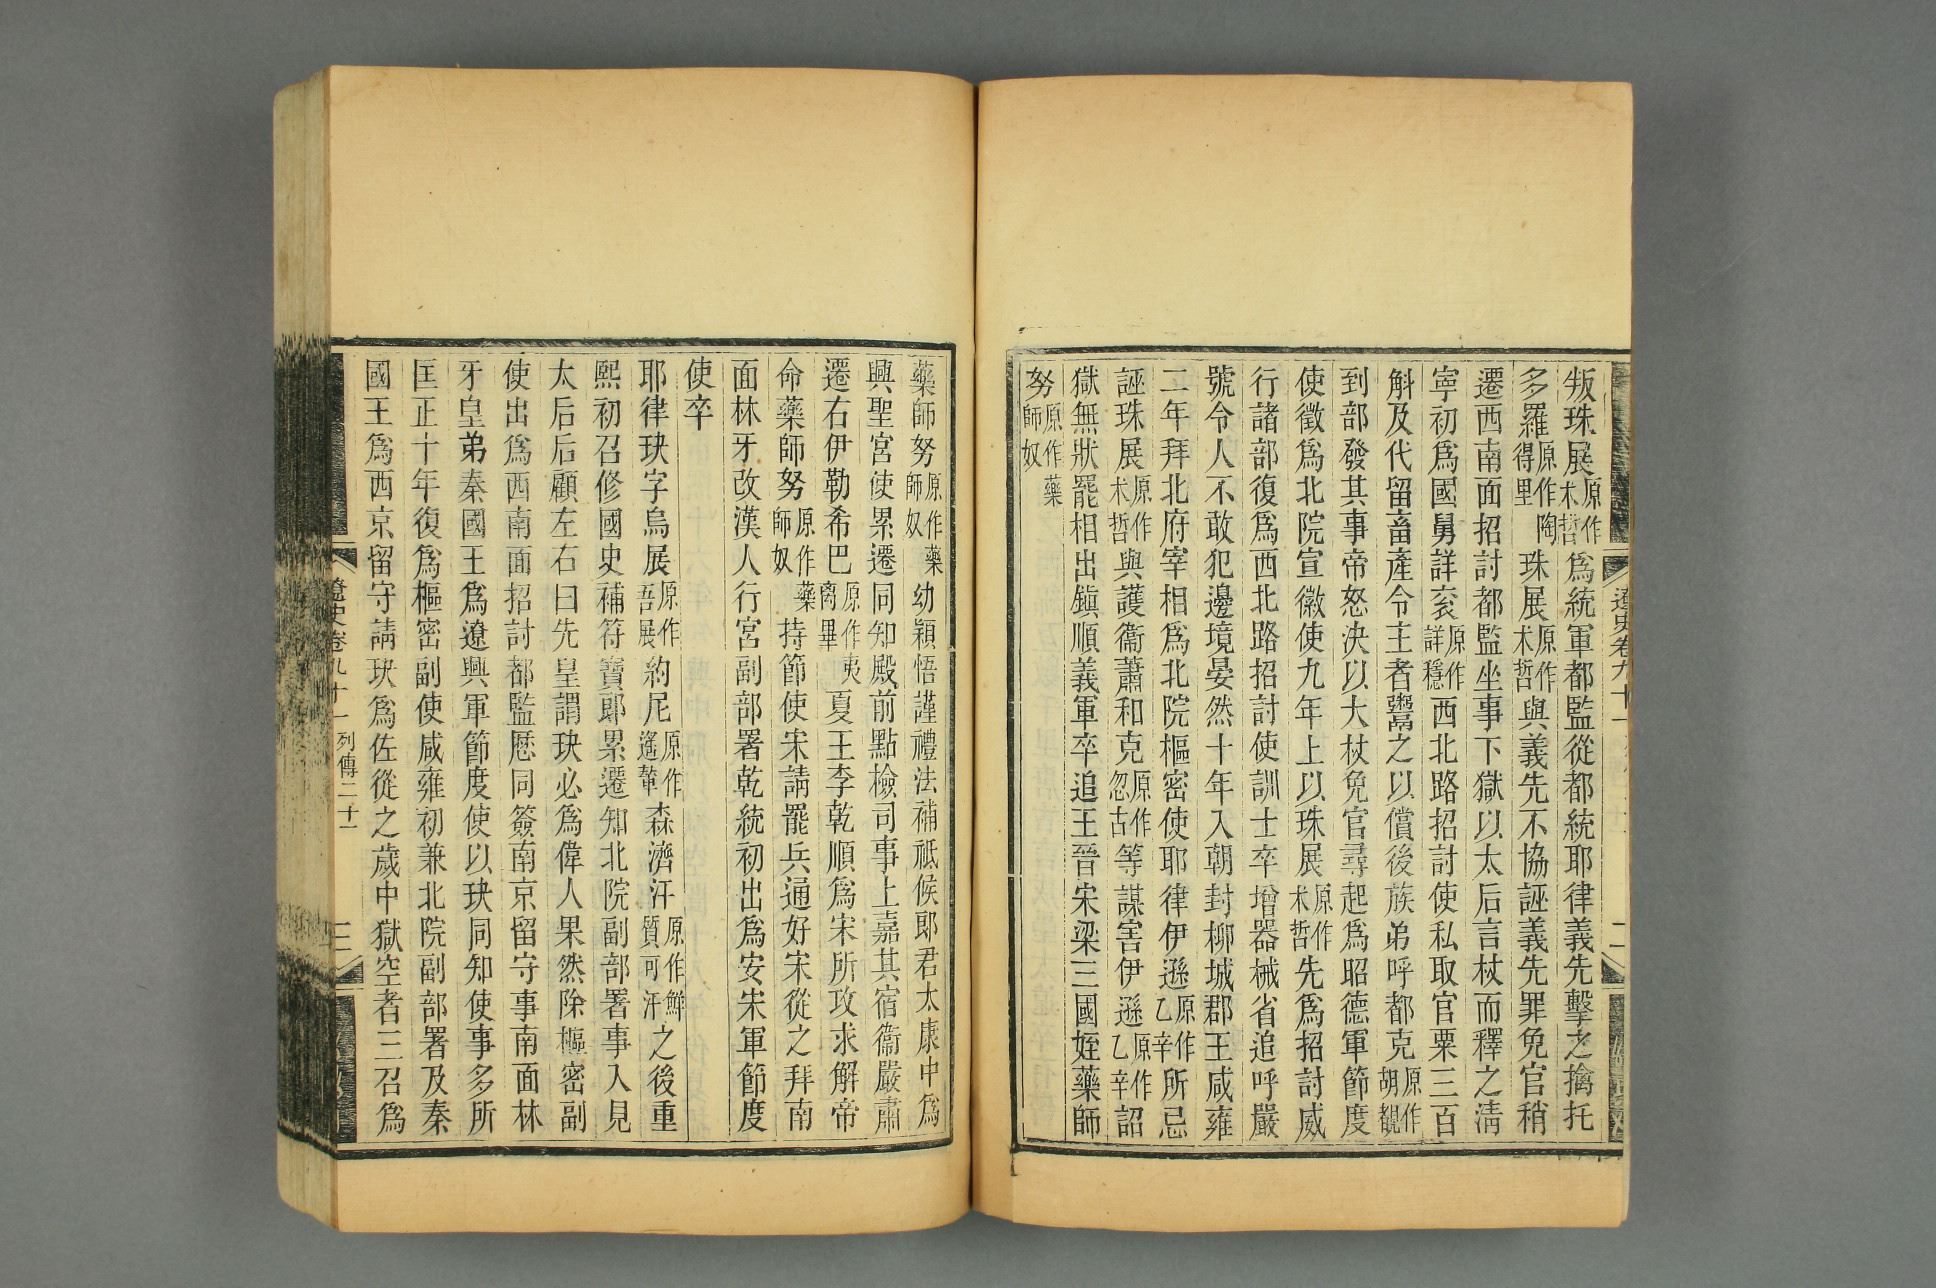 叛珠展原作术哲爲統軍都監從都統耶律義先擊之擒托
多羅原作陶得里珠展原作术哲與義先不協誣義先罪免官稍
遷西南面招討都監坐事下獄以太后言杖而釋之淸
寧初爲國舅詳衮原作詳穩西北路招討使私取官粟三百
斛及代留畜產令主者鬻之以償後族弟呼都克原作胡覩
到部發其事帝怒決以大杖免官尋起爲昭德軍節度
使徵爲北院宣徽使九年上以珠展原作术哲先爲招討威
行諸部復爲西北路招討使訓士卒增器械省追呼嚴
號令人不敢犯邊境晏然十年入朝封柳城郡王咸雍
二年拜北府宰相爲北院樞密使耶律伊遜原作乙辛所忌
誣珠展原作术哲與護衞蕭和克原作忽古等謀害伊遜原作乙辛詔
獄無狀罷相出鎭順義軍卒追王晉宋梁三國姪藥師
努原作藥師奴
遼史卷九十一
二
藥師努原作藥師奴幼穎悟謹禮法補祗候郎君太康中爲
興聖宮使累遷同知殿前點檢司事上嘉其宿衞嚴肅
遷右伊勒希巴原作夷离畢夏王李乾順爲宋所攻求解帝
命藥師努原作藥師奴持節使宋請罷兵通好宋從之拜南
面林牙改漢人行宮副部署乾統初出爲安東軍節度
使卒
耶律玦字烏展原作吾展約尼原作遙輦森濟汗原作鮮質可汗之後重
熙初召修國史補符寶郎累遷知北院副部署事入見
太后后顧左右曰先皇謂玦必爲偉人果然除樞密副
使出爲西南面招討都監歷同簽南京留守事南面林
牙皇弟秦國王爲遼興軍節度使以玦同知使事多所
匡正十年復爲樞密副使咸雍初兼北院副部署及秦
國王爲西京留守請玦爲佐從之歲中獄空者三召爲
遼史卷九十一 列傳二十一